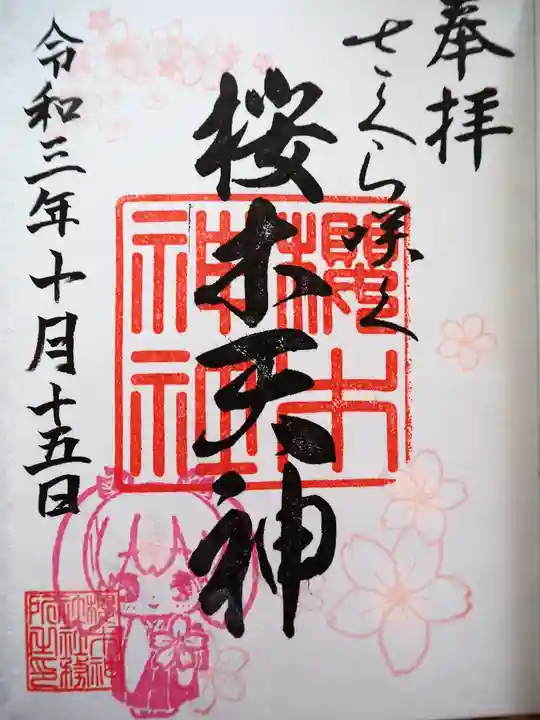 奉拝
さくら咲く
桜木天神
櫻木
神社
令和三年十月十五日